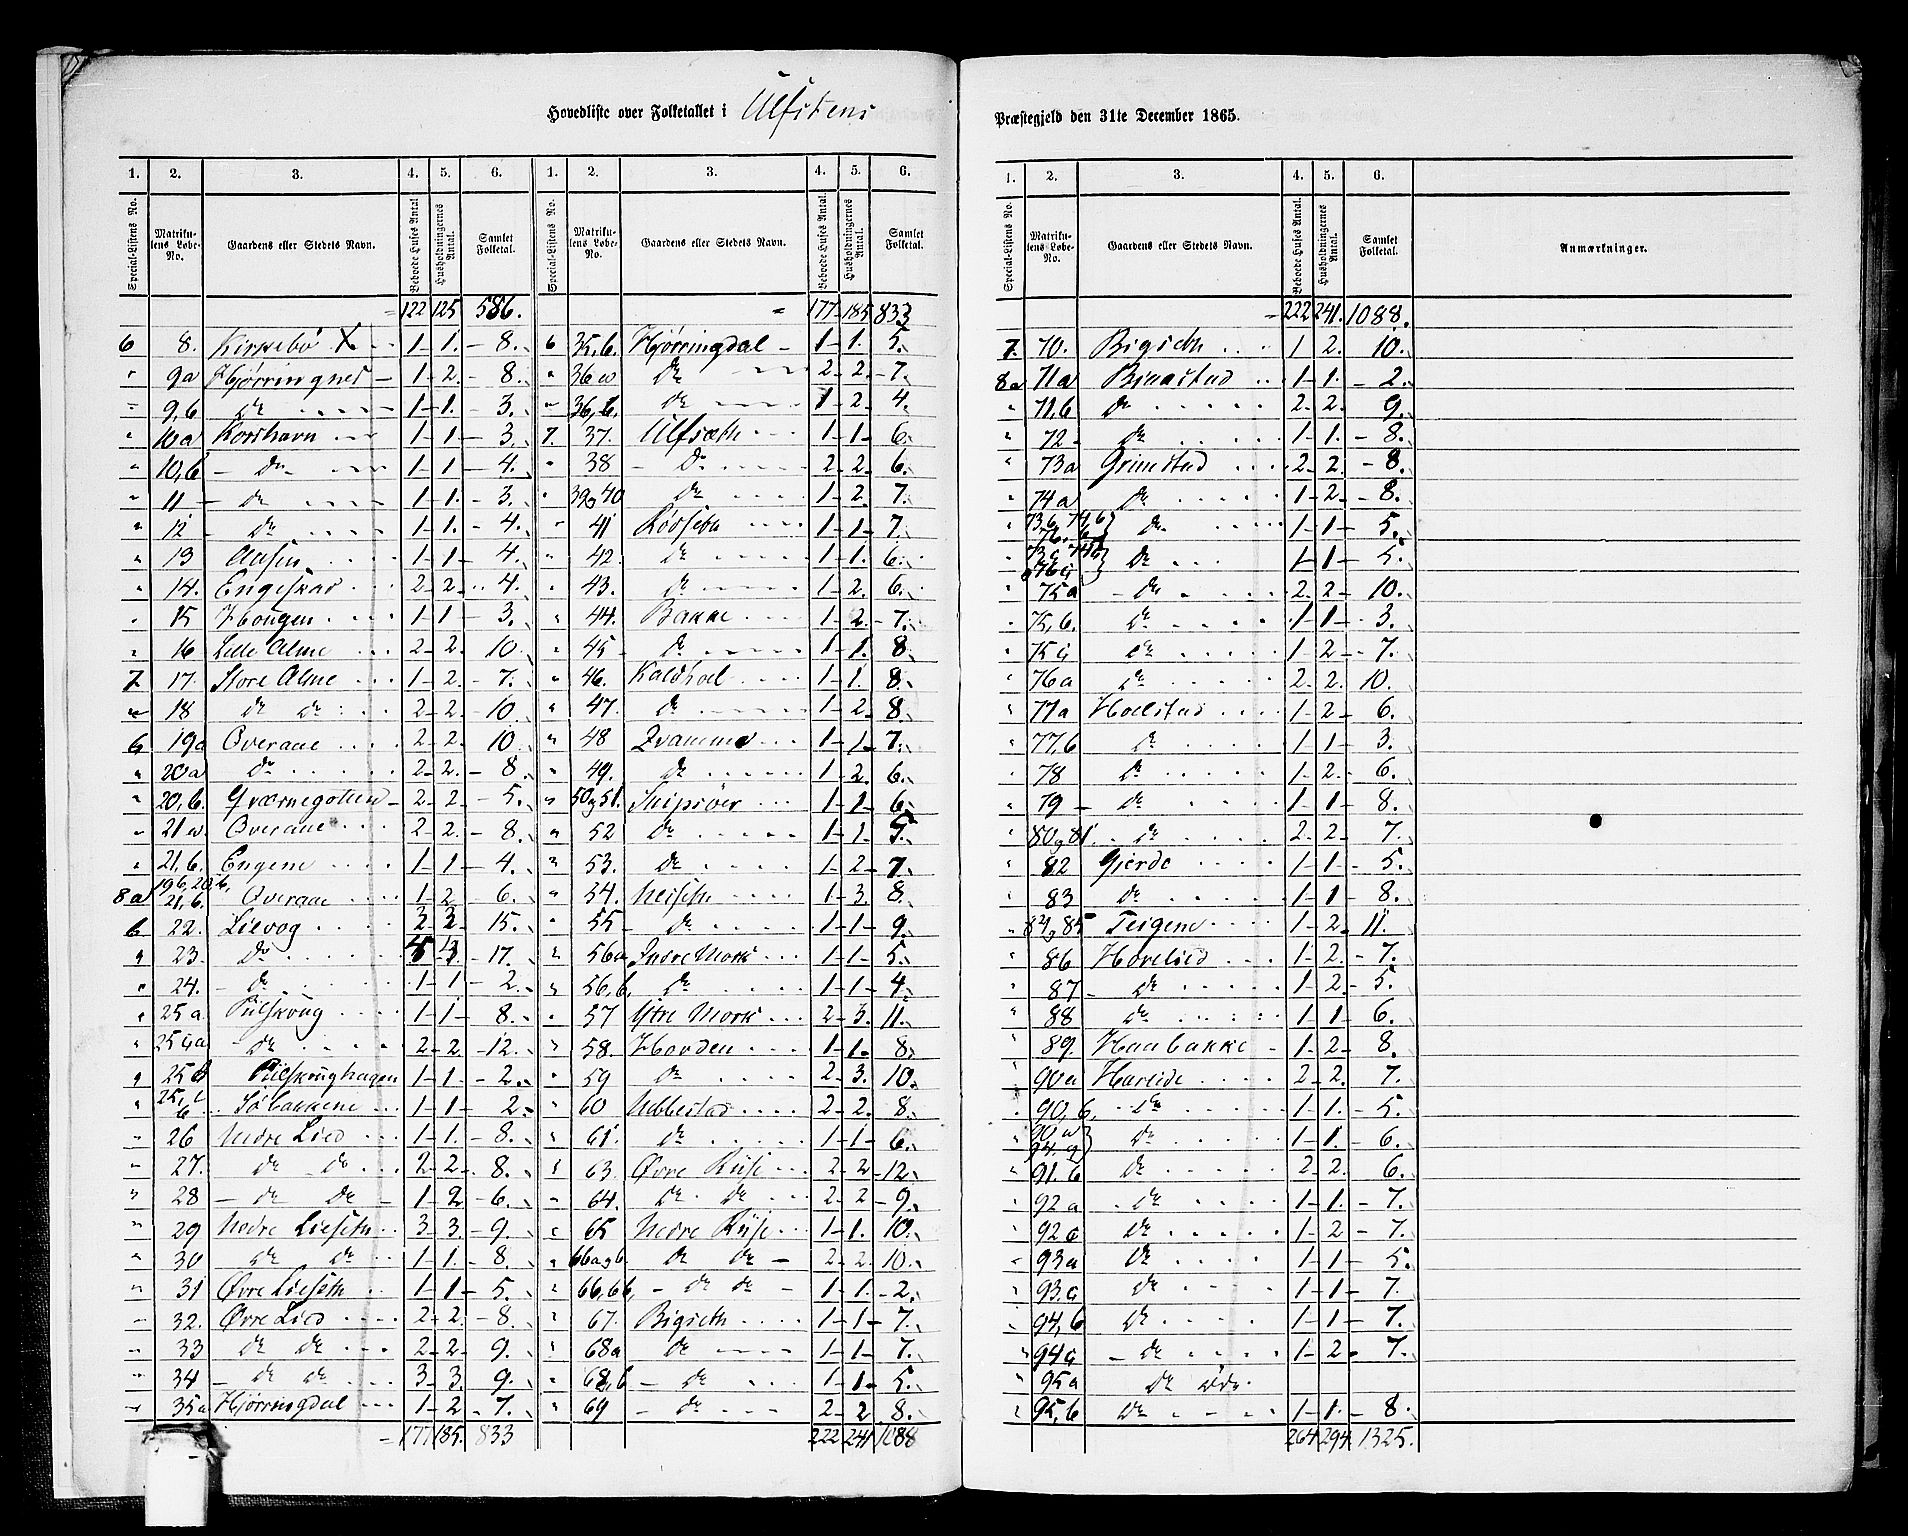 Hovedliste over Folketallet i Ulfstens
Præstegjeld den 31te December 1865.
1. 2. 3. 4. 5. 6. 1. 2. 3. 4. 5. 6.
Special-Listens No. Matrikulens Løbe-No. Gaardens eller Stedets Navn. Beboede Huses Antal Husholdningernes Antal. Samlet Folketal.
= 122 125 586.
6 8. Kirkebø X 1 1. 8.
" 9a Hjørringnes 1 2. 8.
" 9,b do 1 1. 3.
" 10a Korshavn 1 1 3.
" 10,b do 1 1 4.
" 11 do 1 1. 3.
" 12 do 1 1. 4.
" 13 Aasen 1 1 4.
" 14. Engeskar 2 2. 4.
" 15 Hougen 1 1 3.
" 16 Lille Alme 2 2. 10.
7 17. Store Alme 1 2. 7.
" 18 do do 2 2. 10
6 19a Overaae 2 2. 10.
" 20a do 2 2. 8.
" 20,b. Qværnegoteen 2 2. 5.
" 21a Overaae 2 2. 8.
" 21,b. Engene 1 1 4.
8a 19b, 20,b, 21,b. Overaae 1 2 6.
6 22. Lievog 3 3 15.
" 23. do 17.
" 24. do 1 1 2.
" 25a. Pilskoug 1 1 8.
" do 2 2. 12.
" Pilskoughagen 1 1. 2.
" Søbakkene 1 1 2.
" 26 Nedre Lied 1 1. 8.
" 27. do do 2 2. 8.
" 28 do do 1 2 6.
" 29 Nedre Lieseth 3 3. 9.
" 30 do do 1 1. 8.
" 31 Øvre Lieseth 1 1 5.
" 32. Øvre Lied 2 2. 8.
" 33 do do 2 2. 9.
" 34 do do 3 3. 9.
" 35a Hjørringdal 1 2 7.
= 177 185. 833
Special-Listens No. Matrikulens Løbe-No. Gaardens eller Stedets Navn. Beboede Huses Antal. Husholdningernes Antal. Samlet Folketal.
" 177 185 833
6 35,b. Hjørringdal 1 1. 5.
" 36a do 2 2. 7.
" 36,b. do 1 2 4.
7. 37. Ulfsæth 1 1 6.
" 38 do 2 2. 6.
" 39 og 40 do 1 2. 7.
" 41 Rødseth 1 1 7.
" 42. do 1 1. 6.
" 43. do 1 2. 6.
" 44. Bakke 1 2. 7.
" 45 do 1 1. 8
" 46. Kaldhol 1 1. 8.
" 47. do 1 2. 8.
" 48 1 1. 7.
" 49. do 1 2. 6.
" 50 og 51. Skipsøer 1 1 6.
" 52 do 1 1. 5.
" 53. do 1 2 7.
" 54. Neiseth 1 3. 8.
" 55 do 1 1 9.
" 56a Indre Mork 1 1 5.
" 56,b, do 1 1 4.
" 57 Ytre Mork 2 3. 11.
" 58. Hovden 1 1. 8.
" 59 do 2 3. 10.
" 60 Ubbestad 2 2. 8.
" 61. do 1 1 6.
" 63. Øvre Riise 2 2 12.
" 64. do do 2 2 9.
" 65 Nedre Riise 1 1. 10.
" 66a og b do do 2 2. 10.
" 66,bb, do do 1 1. 2.
" 67. Bigseth 1 1 7.
" 68a do 1 1 7.
" 68,b do 1 1. 5.
" 69 do 2 2 8.
222 241 1088
1. 2. 3. 4. 5. 6.
Special-Listens No. Matrikulens Løbe-No. Gaardens eller Stedets Navn. Beboede Huses Antal. Husholdningernes Antal. Samlet Folketal. Anmærkninger.
= 222 241. 1088.
7. 70. Bigseth 1 2. 10.
8a 71a Bjaastad 1 1. 2.
" 71,b do 2 2. 9.
" 72 do 1 1. 8.
" 73a Grimstad 2 2. 8.
" 74a do 1 2 8.
" 73,b, 74,b, 76,b do 1 1 5.
" do 1 1 5.
" 75a do 2 2 10.
" 75,b. do 1 1 3.
" 75c do 1 2 7.
" 76a do 2 2. 10.
" 77a Holstad 1 2 6.
" 77,b do 1 1 3.
" 78 do 1 2 6.
" 79 do 1 1 8.
" 80 og 81. do 2 2 7.
" 82 Gjerde 1 1 5.
" 83 do 1 1 8.
" 84 og 85 Teigene 1 2. 11.
" 86 Hovelied 1 2. 7.
" 87 do 1 2 5.
" 88 do 1 1 6.
" 89. Haabakke 1 2 8.
" 90a Hareide 2 2. 7.
" 90,b, do 1 1. 5.
" do 1 1. 6.
" 91.b do 2 2. 6.
" 92a do 1 1. 7.
" 92c do 1 2 7.
" 93a do 1 1 5.
" 93.c do 1 1 7.
" 94,b do 1 1 7.
" 94c do 1 2. 7.
" 95a do øde.
" 95,b do 1 1. 8.
264 294. 1325.